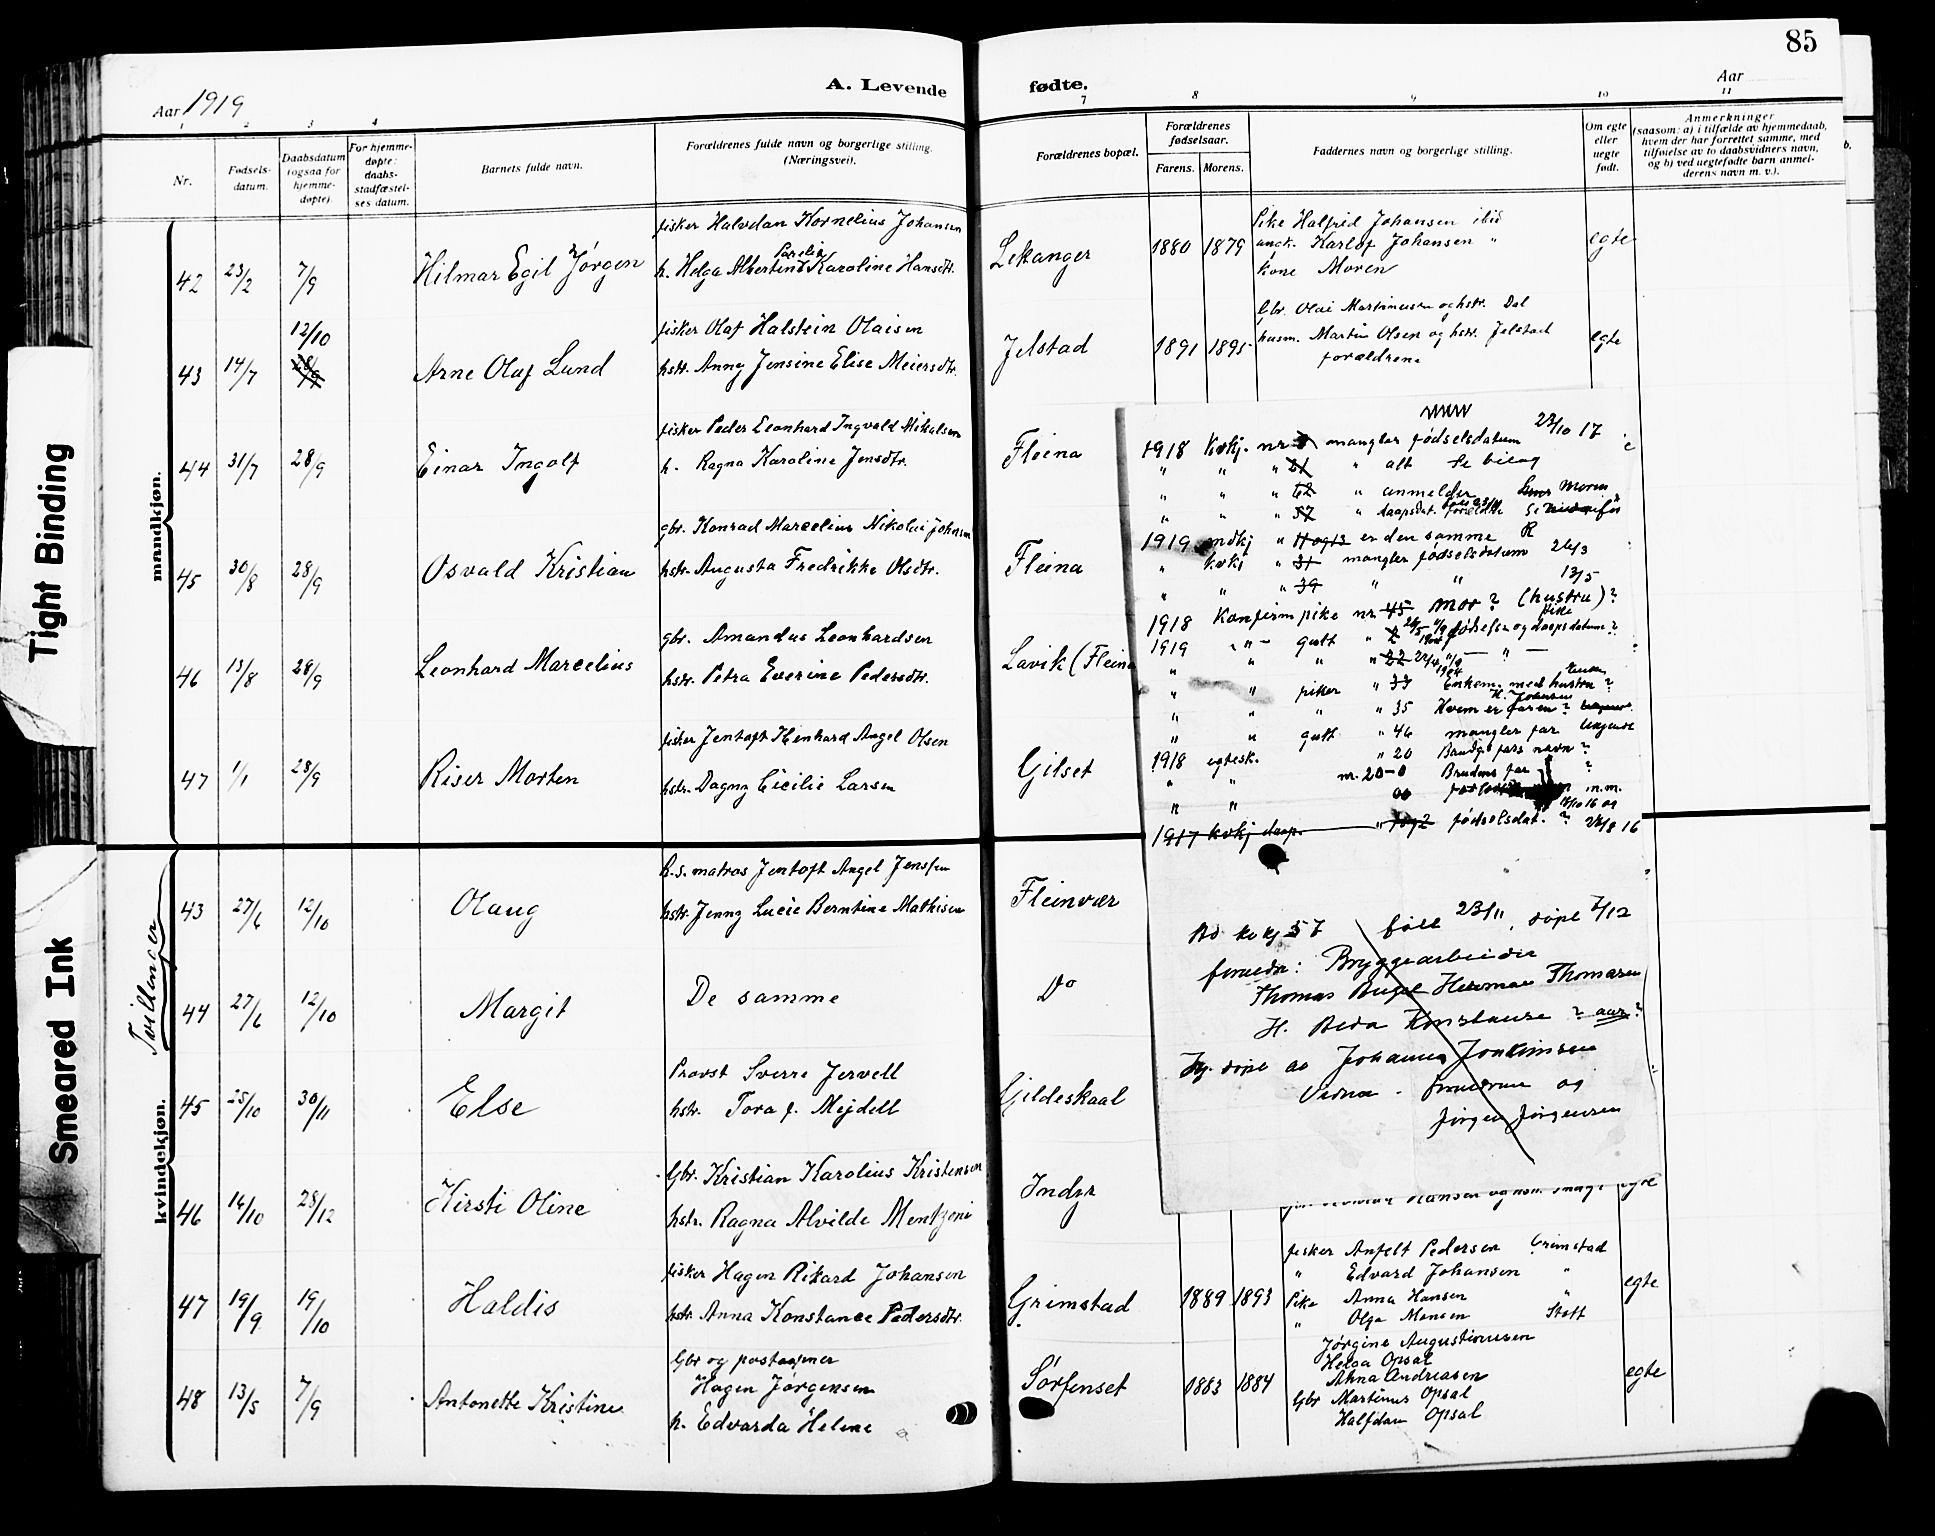 85
Aar 1919
A. Levende
fødte.
Aar
1 2 3 4
7 8 9 10 11
Nr.
Fødsels-
datum.
Daabsdatum
(ogsaa for
hjemme-
døpte).
For hjemme-
døpte:
daabs-
stadfæstel-
ses datum.
Barnets fulde navn.
Forældrenes fulde navn og borgerlige stilling.
(Næringsvei).
Forældrenes bopæl.
Forældrenes
fødselsaar.
Farens. Morens.
Faddernes navn og borgerlige stilling.
Om egte
eller
uegte
født.
Anmerkninger
(saasom: a) i tilfælde av hjemmedaab,
hvem der har forrettet samme, med
tilføielse av to daabsvidners navn,
og b) ved uegtefødte barn anmel-
derens navn m. v.).
b.
Tight Binding
Smeared Ink
mandkjøn.
42 23/2 7/9 Hilmar Egil Jørgen
fisker Halvdan Kornelius Johansen
h. Helga Albertine Karoline Hansdtr.
Lekanger 1880 1879
Pike Halfrid Johansen ibid
ungk. Karlof Johansen "
kone Moren
egte
43 14/7 12/10 28/9 Arne Olaf Lund
fisker Olaf Halstein Olaisen
hstr. Anny Jensine Elise Meiersdtr.
Jelstad 1891 1895
Gbr. Olai Martinussen og hstr. Dal
husm. Martin Olsen og hstr. Jelstad
forældrene
egte
44 31/7 28/9 Einar Ingolf
fisker Peder Leonhard Ingvald Mikalsen
h. Ragna Karoline Jensdtr.
Fleina
45 30/8 28/9 Osvald Kristian
gbr. Konrad Marcelius Nikolai Johnsen
hstr. Augusta Fredrikke Olsdtr.
Fleina
46 13/8 28/9 Leonhard Marcelius
gbr. Amandus Leonhardsen
hstr. Petra Everine Pedersdtr.
Lavik (Fleina
47 1/1 28/9 Riser Morten
fisker Jentoft Henhard Angel Olsen
hstr. Dagny Cicilie Larsen
Gilset
Tvillinger
kvindekjøn.
43 27/6 12/10 Olaug
R.S. matros Jentoft Angel Jenssen
hstr. Jenny Lucie Berntine Mathisen
Fleinvær
44 27/6 12/10 Margit
De samme
Do
45 25/10 30/11 Else
Provst Sverre Jervell
hstr. Tora f. Mejdell
Gildeskaal
46 14/10 28/12 Kirsti Oline
Gbr. Kristian Karolius Kristensen
hstr. Ragna Alvilde Mentzoni
Indyr
egte
47 19/9 19/10 Haldis
fisker Hagen Rikard Johansen
hstr. Anna Konstance Pedersdtr.
Grimstad 1889 1893
fisker Anfelt Pedersen Grimstad
" Edvard Johansen "
Pike Anna Hansen "
" Olga Monsen Stott
egte
48 13/5 7/9 Antonette Kristine
Gbr og postaapner
Hagen Jørgensen
h. Edvarda Helene
Sørfenset 1883 1884
Jørgine Augustinusen
Helga Opsal
Anna Andreasen
Gbr Martinus Opsal
Halfdan Opsal
egte
1918 kvkj. nr mangler fødselsdatum 23/10 17
" " " 21 " alt Se bilag
" " " 62 " anmelder Moren
" " " 57 " daapsdat. forældre
1919 mdkj " 11 og 13 er den samme
" kvkj " 31 mangler fødselsdatum 26/3
" " " 39 " " 13/5
1918 Konfirm pike nr 45 Mor? (hustru)?
1919 " gutt " 2 fødsels og daapsdatum?
" " " 22 " "
" " piker " 33 Enkem. med hustru?
" " " " 35 Hvem er faren?
" " gutt " 46 mangler far
1918 egtesk. " 20 Brudgs fars navn?
" " nr. 20 Brudens far ?
1917 kvkj daap. " 1 og 2 fødselsdat. ? 22/8 16
kvkj 57 født 23/11, døpt 7/12
forældr: Bryggearbeider
Thomas Herman Thomasen
H. Beda Konstanse ? aar?
Hj. døpt av Johanna Joakimsen
forældrene og
Jørgen Jørgensen